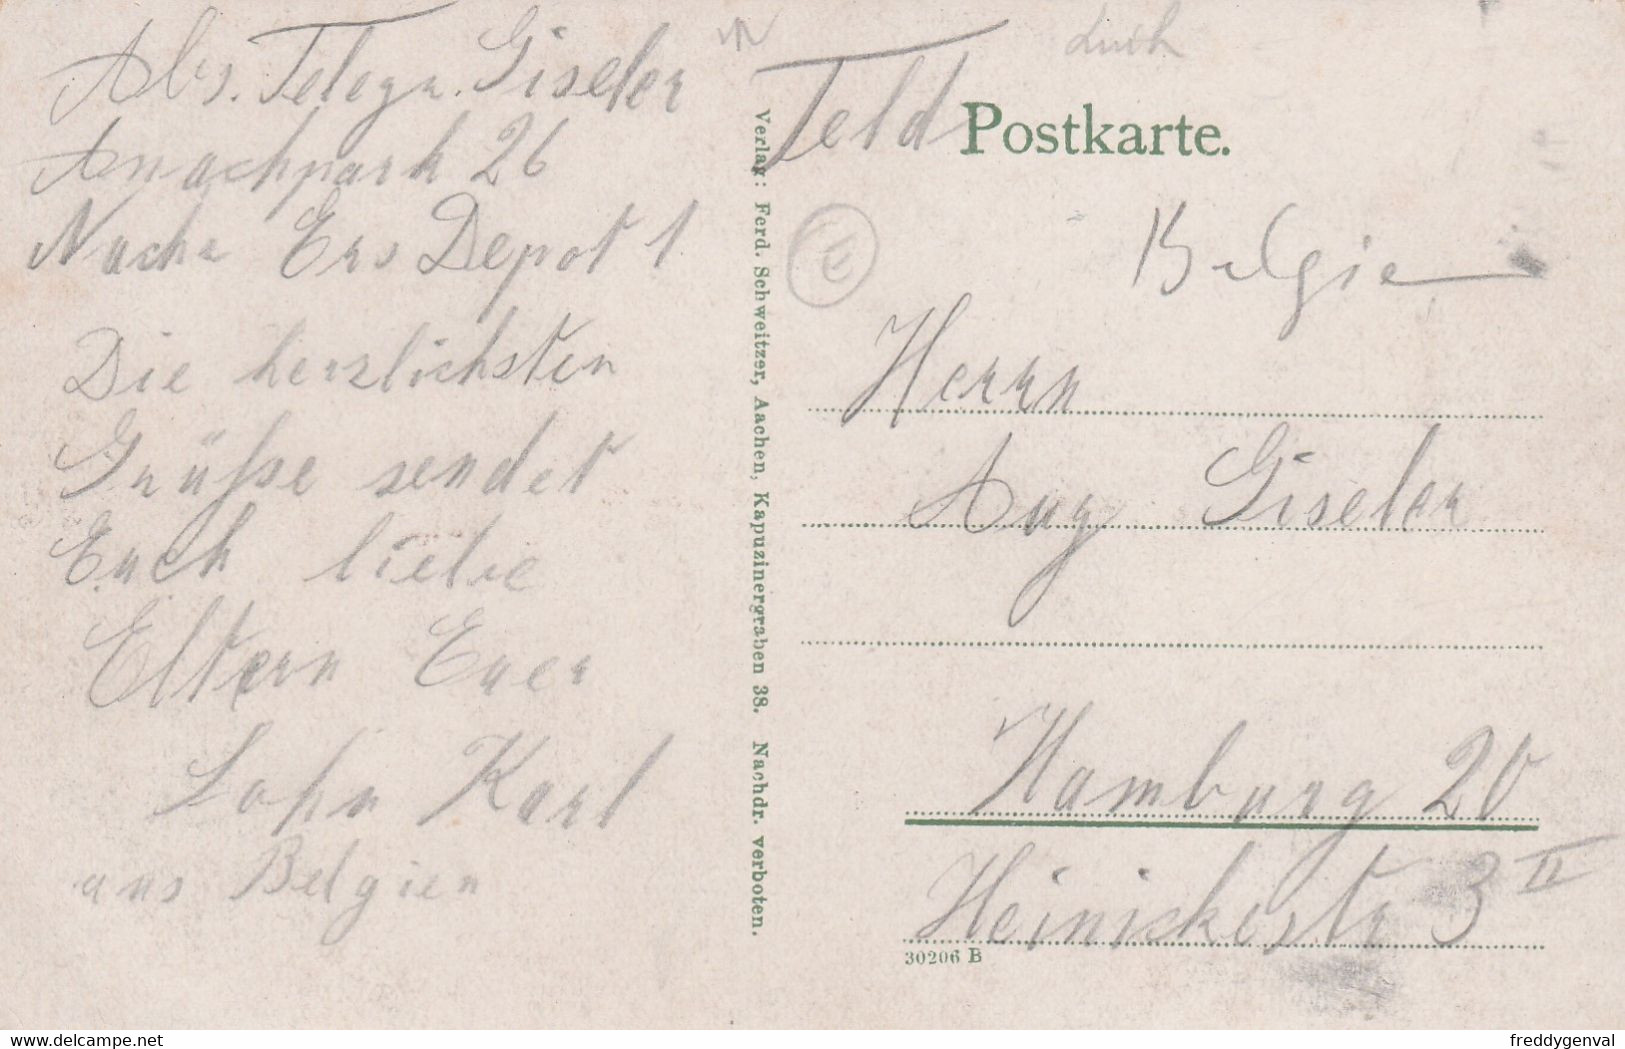 Abs. Telegr. Giseler
26
Nachr Ers Depot 1
Die herzlichsten
Grüße sendet
Euch liebe
Eltern Euer
Sohn Karl
aus Belgien
Verlag: Ferd. Schweitzer, Aachen, Kapuzinergraben 38. Nachdr. verboten.
Feld Postkarte.
E
Belgie
Herrn
Aug Giseler
Hamburg 20
Heinickestr 3 II
30206 B
www.delcampe.net
freddygenval